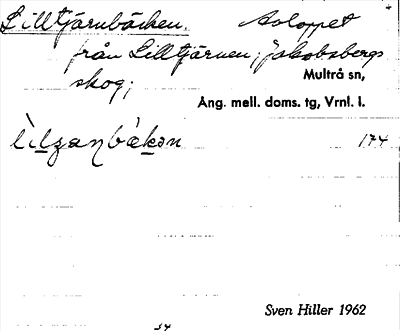 Lilltjärnbäcken. Avloppet
från Lilltjärnen; Jakobsbergs
skog;
Multrå sn,
Ång. mell. doms. tg, Vrnl. l.
174
Sven Hiller 1962